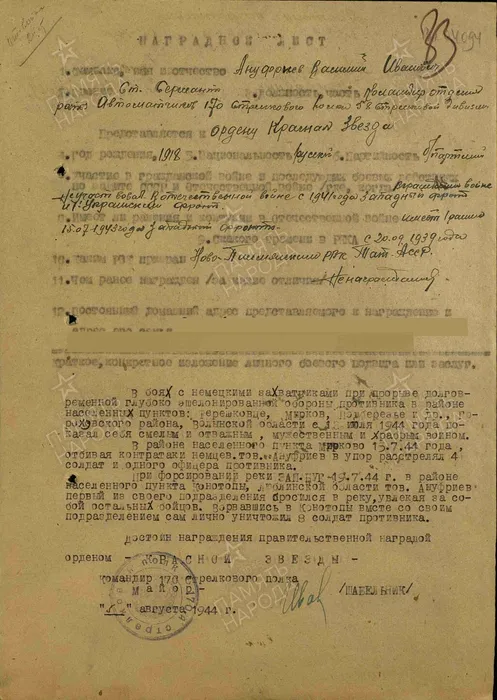 33
НАГРАДНОЙ ЛИСТ
1. Фамилия, имя отчество Ануфриев Василий Иванович
2. Ст. Сержант командир отделен
роты Автоматчиков 170 Стрелкового полка 58 Стрелковой дивизии
Представляется к ордену Красная Звезда
4. Год рождения 1918 5. Национальность русский 6. Партийность б/партийный
7. Участие в гражданской войне и последующих боевых действиях
по защите СССР и отечественной войне
участвовал в отечественной войне с 1941 года Западный фронт
1й Украинский фронт
8. Имеет ли ранения и контузии в отечественной войне имеет 1 ранен
15.07.1943 года Западный фронт
9. С какого времени в РККА с 20.09.1939 года
10. Каким РВК призван РВК Тат. АССР.
11. Чем ранее награжден /за какие отличия/ Не награждался
12. Постоянный домашний адрес представляемого к награждению и
адрес его семьи
Краткое, конкретное изложение личного боевого подвига или заслуг.
В боях с немецкими захватчиками при прорыве долгов-
ременной глубоко эшелонированной обороны противника в районе
населенных пунктов: Терешковце, Мирков, Подберезье и др., Го-
роховского района, Волынской области с июля 1944 года по-
казал себя смелым и отважным, мужественным и храбрым воином.
В районе населенного пункта Мирково 15.7.44 года,
отбивая контратаки немцев.тов. Ануфриев в упор расстрелял 4
солдат и одного офицера противника.
При форсировании реки ЗАП.БУГ-19.7.44 г. в районе
населенного пункта Конотопы, Люблинской области тов. Ануфриев
первый из своего подразделения бросился в реку,увлекая за со-
бой остальных бойцов. Ворвавшись в Конотопы вмсте со своим
подразделением сам лично уничтожил 8 солдат противника.
Достоин награждения правительственной наградой
орденом - КРАСНОЙ ЗВЕЗДЫ -
командир 170 стрелкового полка
майор -
/ШАБЕЛЬНИК/
августа 1944 г.
ПАМЯТЬ НАРОДА